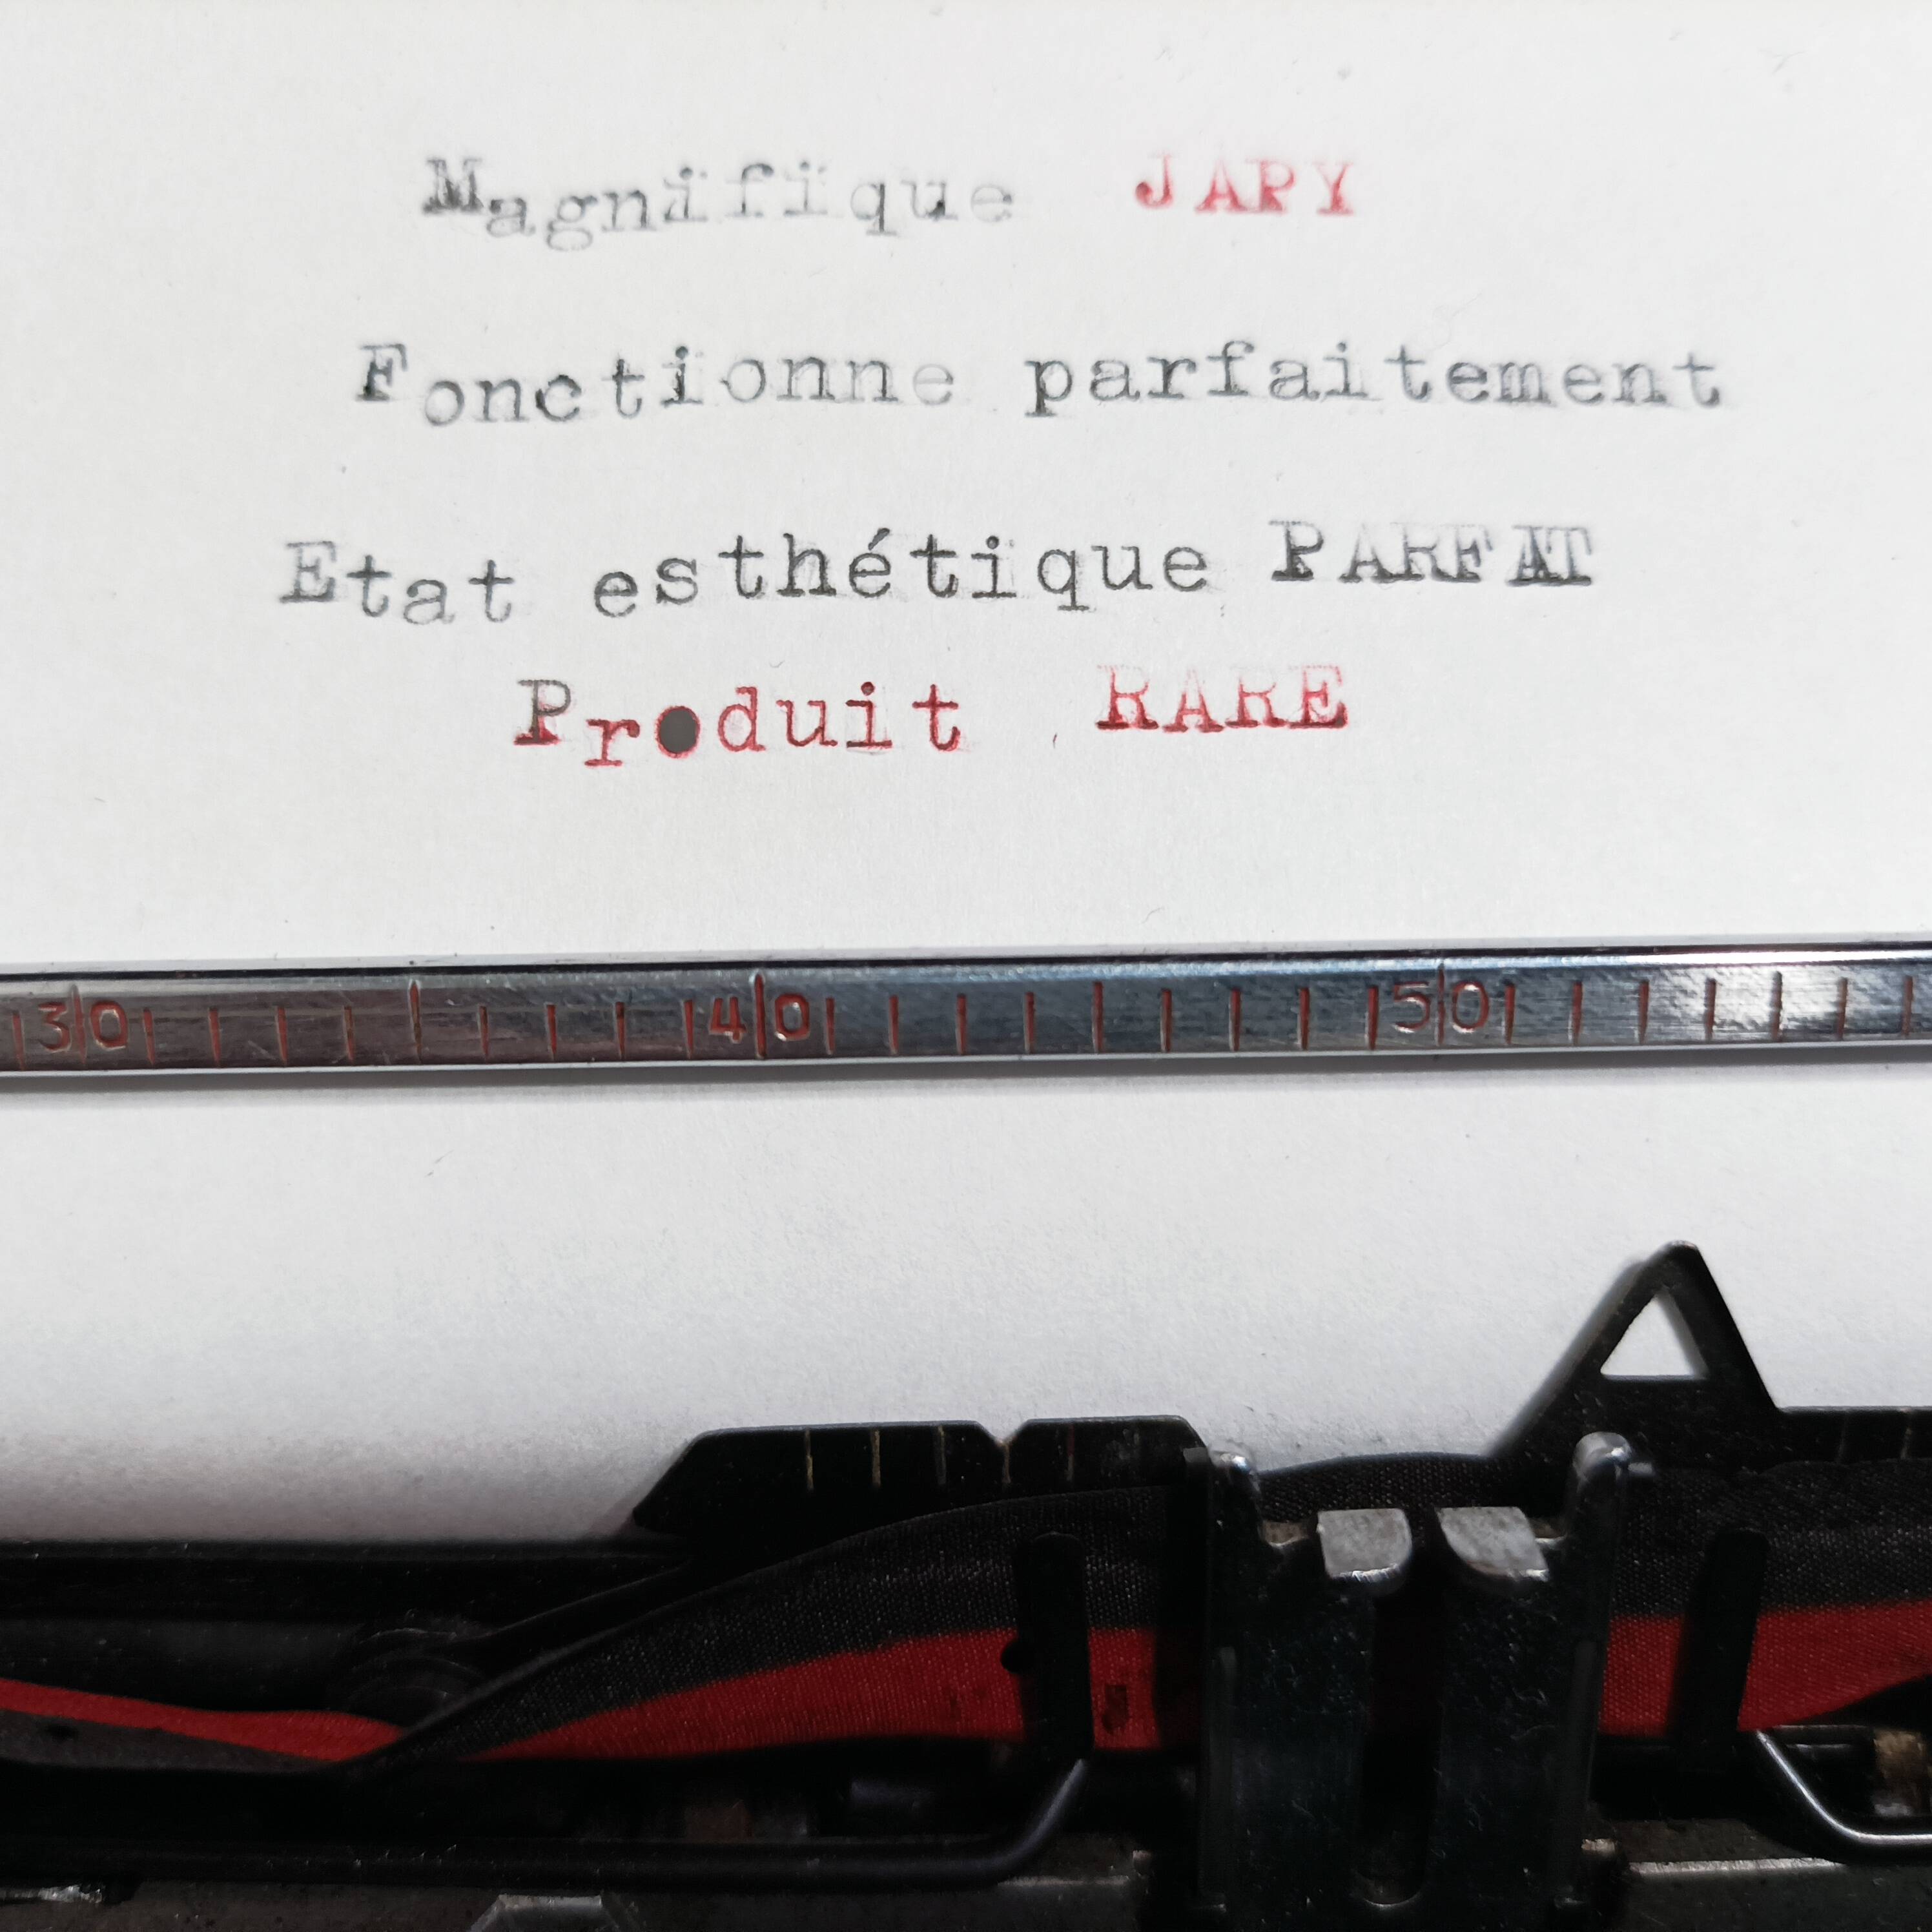 Magnifique JAPY
Fonctionne parfaitement
Etat esthétique PARFAIT
Produit RARE
30 40 50